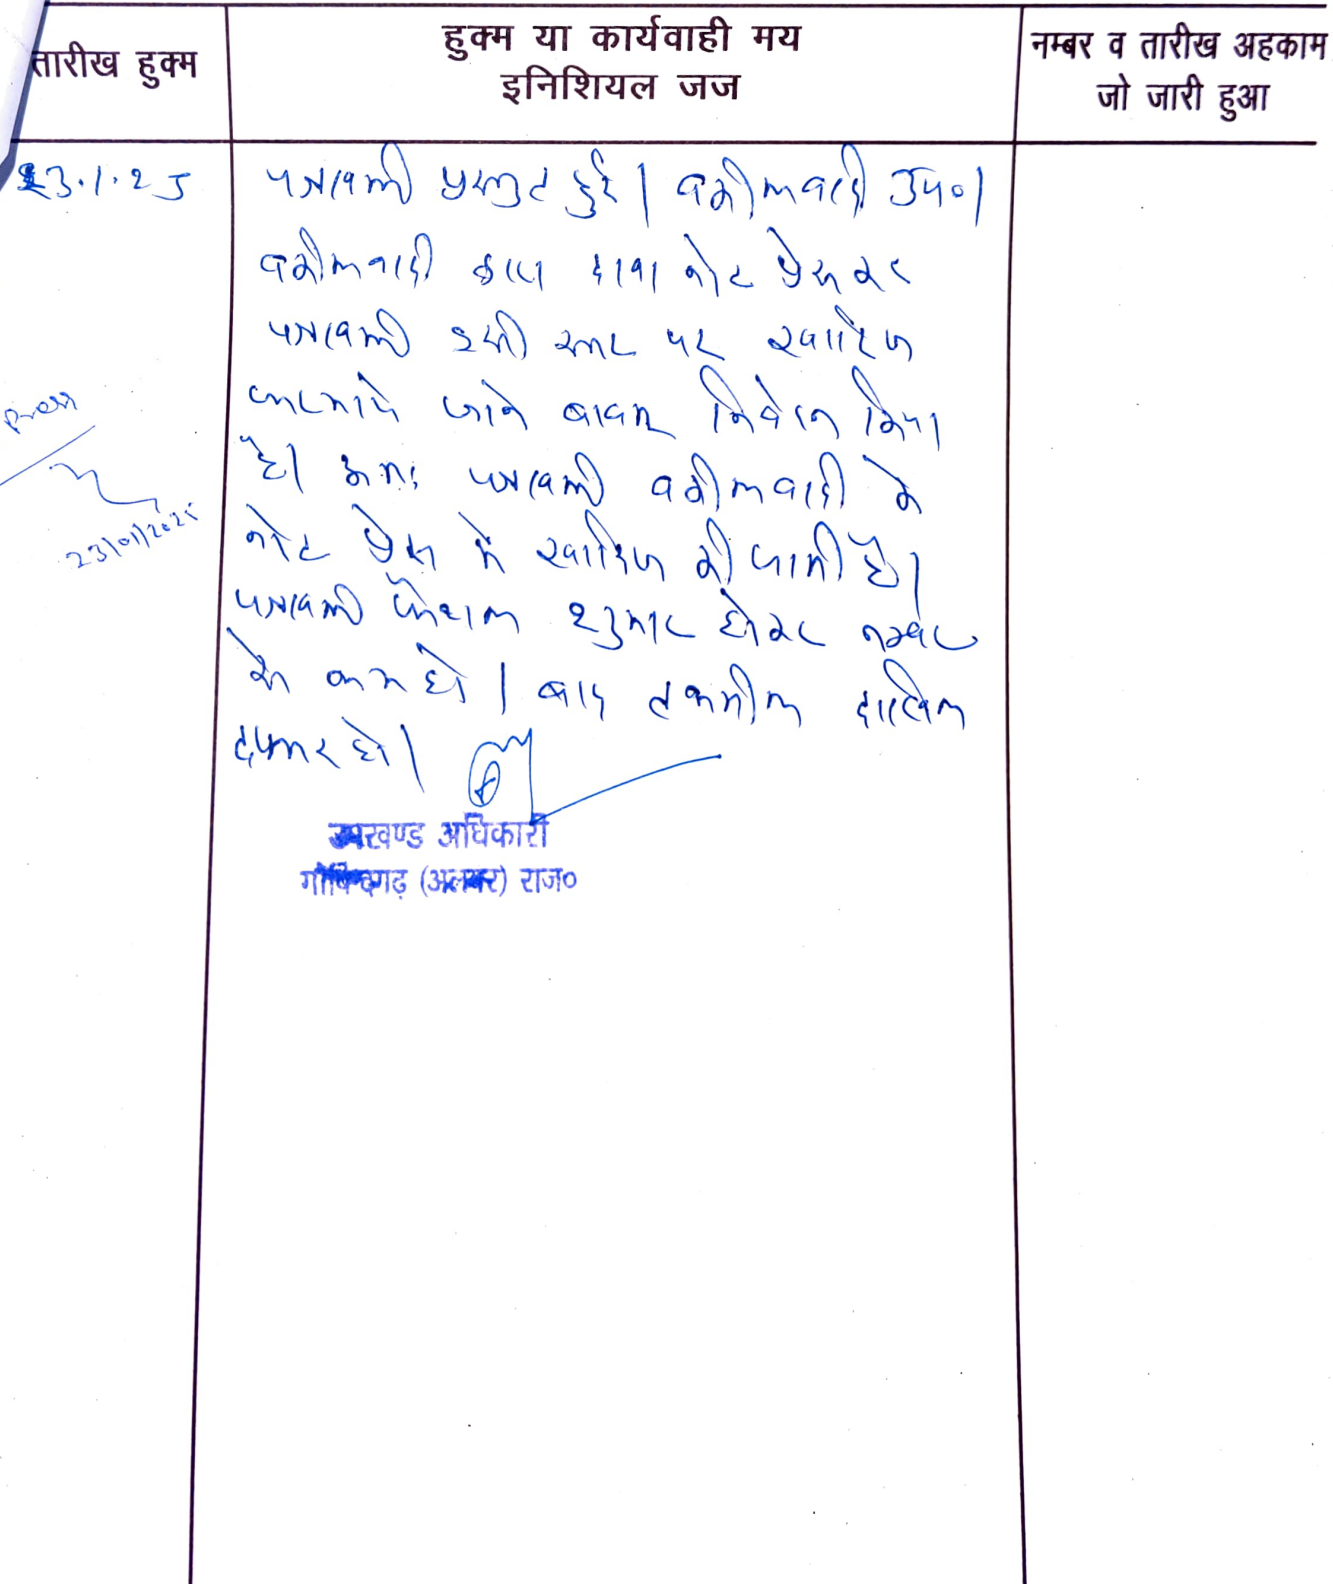 तारीख हुक्म
हुक्म या कार्यवाही मय
इनिशियल जज
नम्बर व तारीख अहकाम
जो जारी हुआ
23.1.25
पत्रावली प्रस्तुत हुई। वकील वादी उप०।
वकील वादी द्वारा दावा नोट प्रेस कर
पत्रावली इसी स्तर पर खारिज
फरमाये जाने बाबत निवेदन किया
है। अतः पत्रावली वकील वादी के
नोट प्रेस में खारिज की जाती है।
पत्रावली फैसल शुमार होकर नम्बर
से कम हो। बाद तकमील दाखिल
दफ्तर हो।
Press
23/01/2025
उपखण्ड अधिकारी
गोविन्दगढ़ (अलवर) राज०